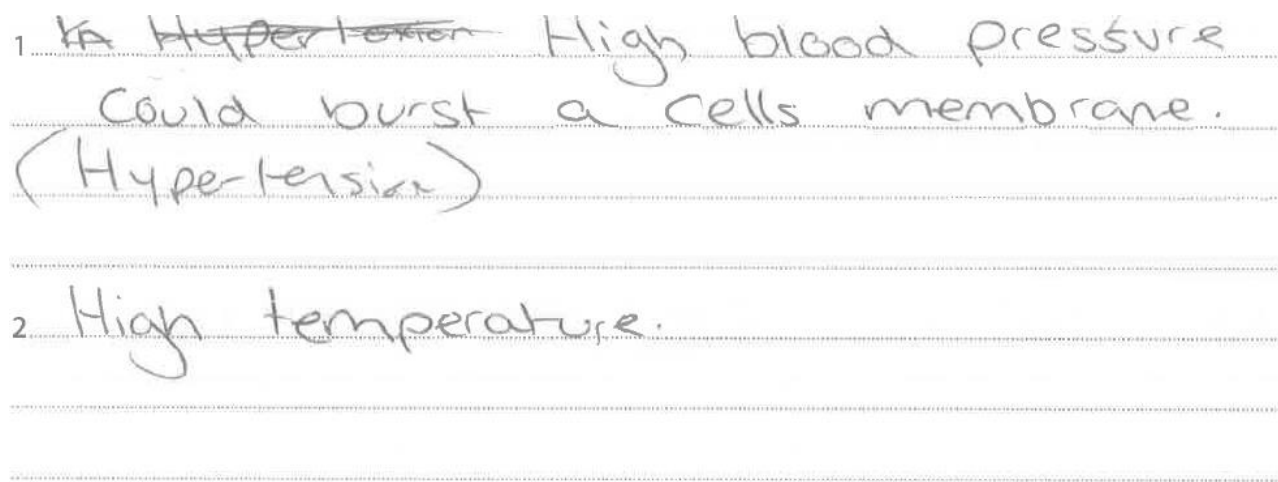 1 High blood pressure
Could burst a cells membrane.
(Hypertension)
2 High temperature.